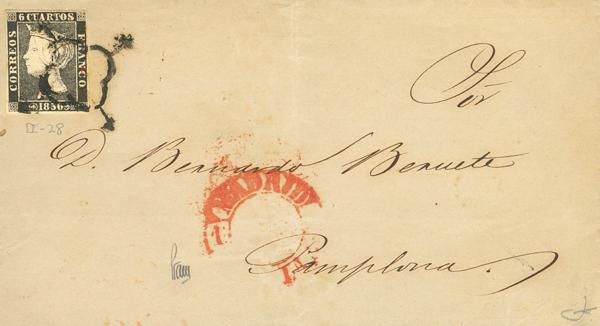 6 CUARTOS
CORREOS
FRANCO
1850
II-28
Sor
D. Bernardo Beruete
MADRID
Pamplona.